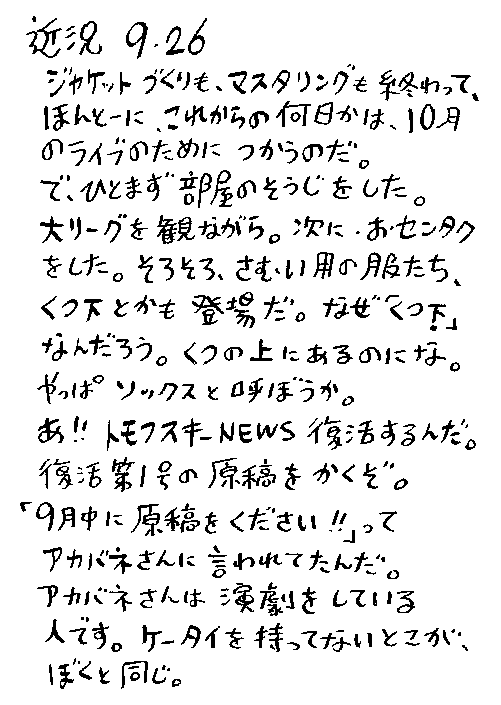 近況 9.26
ジャケットづくりも、マスタリングも終わって、
ほんとーに、これからの何日かは、10月
のライブのために つかうのだ。
で、ひとまず部屋のそうじをした。
大リーグを観ながら。次に・おセンタク
をした。そろそろ、さむい用の服たち、
くつ下とかも登場だ。なぜ「くつ下」
なんだろう。くつの上にあるのにな。
やっぱ ソックスと呼ぼうか。
あ!! トモフスキーNEWS 復活するんだ。
復活第1号の原稿をかくぞ。
「9月中に原稿をください!!」って
アカバネさんに言われてたんだ。
アカバネさんは 演劇をしている
人です。ケータイを持ってないとこが、
ぼくと同じ。